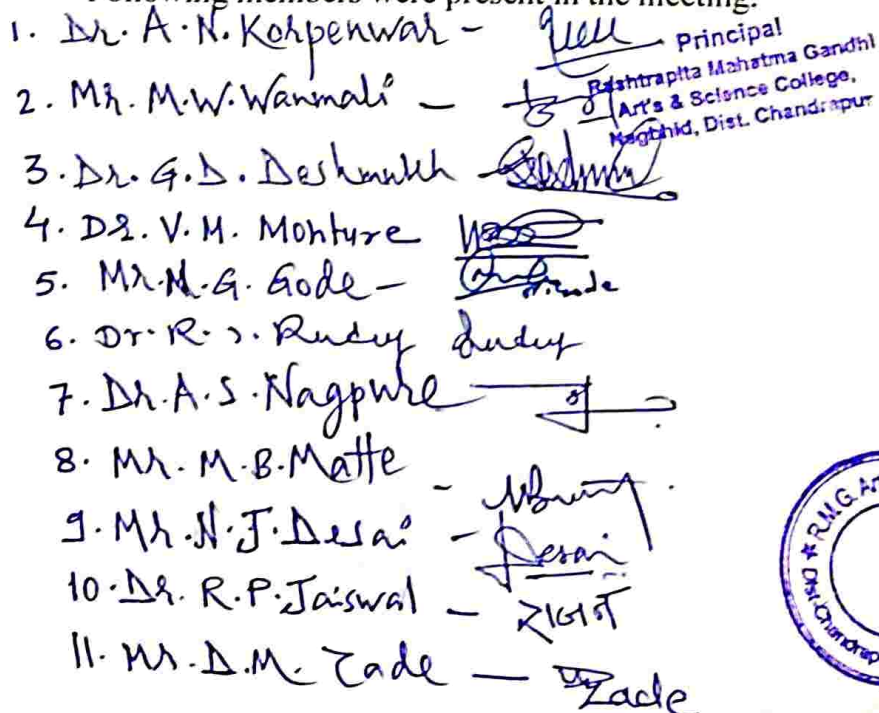 Following members were present in the meeting.
1. Dr. A. N. Korpenwar -
Principal
Rashtrapita Mahatma Gandhi
Art's & Science College,
Nagbhid, Dist. Chandrapur
2. Mr. M. W. Wanmali -
3. Dr. G. D. Deshmukh -
4. Dr. V. M. Monture
5. Mr. M. G. Gode -
6. Dr. R. S. Rudey Rudey
7. Dr. A. S. Nagpure
8. Mr. M. B. Matte -
9. Mr. N. J. Desai - Desai
10. Dr. R. P. Jaiswal -
11. Mr. D. M. Zade — Zade
R.M.G. Art
Dist-Chandrap